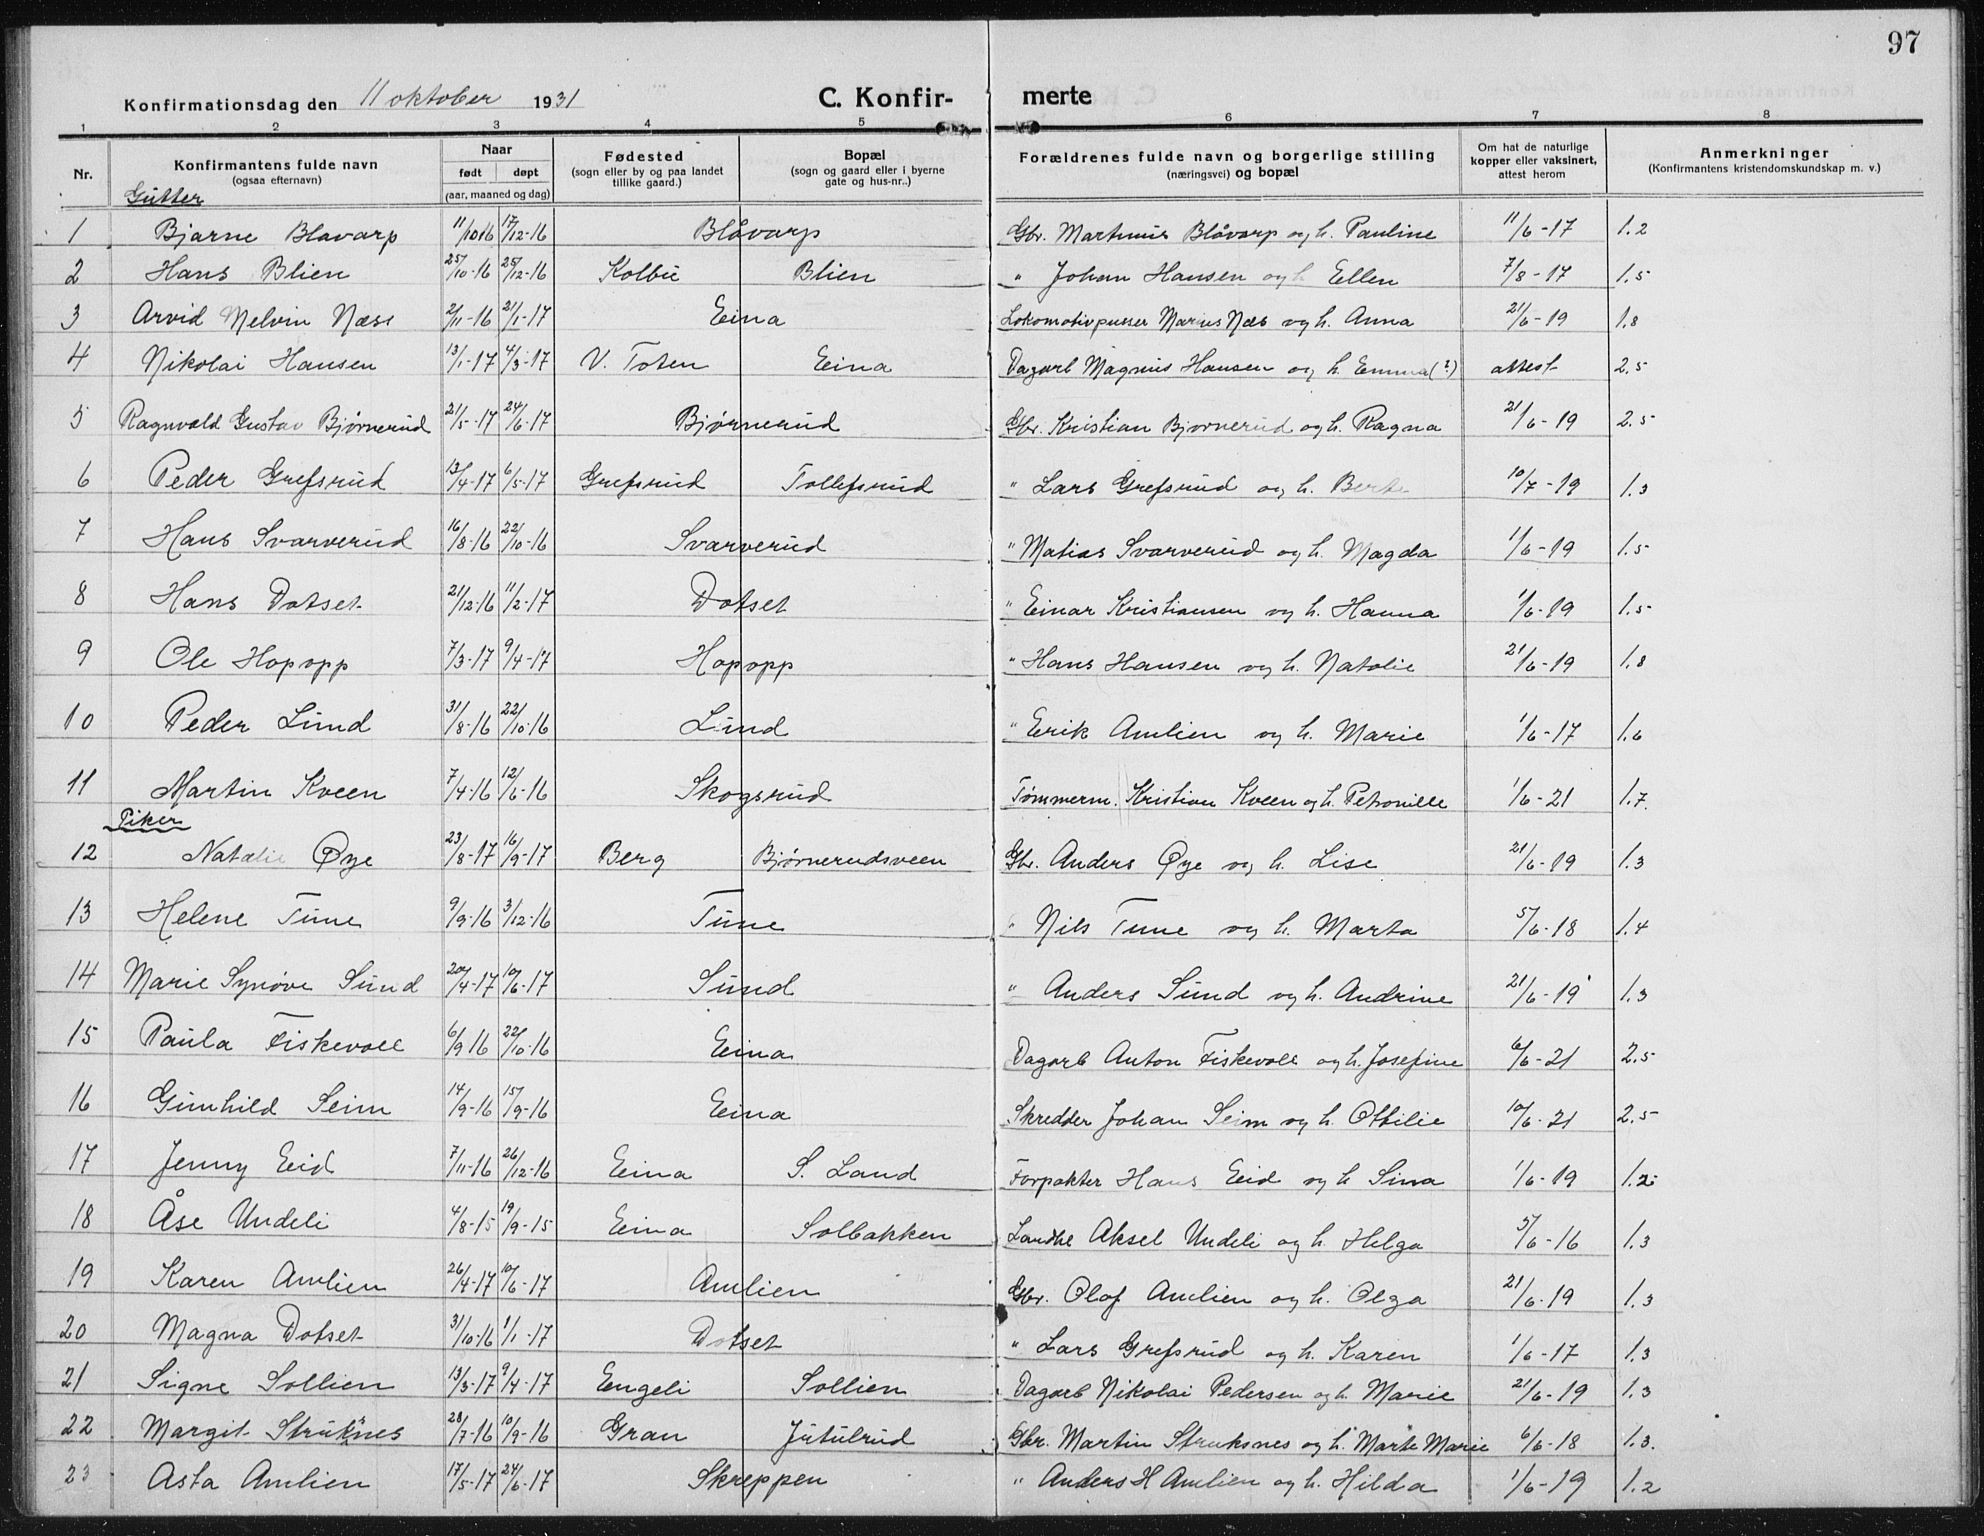 97
Konfirmationsdag den 11 oktober 1931 C. Konfir- merte
1 2 3 4 5 6 7 8
Nr. Konfirmantens fulde navn (ogsaa efternavn) Naar født døpt (aar, maaned og dag) Fødested (sogn eller by og paa landet tillike gaard.) Bopæl (sogn og gaard eller i byerne gate og hus-nr..) Forældrenes fulde navn og borgerlige stilling (næringsvei) og bopæl Om hat de naturlige kopper eller vaksinert, attest herom Anmerkninger (Konfirmantens kristendomskundskap m. v.)
Gutter
1 Bjarne Blåvarp 11/10 16 17/12-16 Blåvarp Gbr. Martinius Blåvarp og h. Pauline 11/6-17 1.2
2 Hans Blien 25/10-16 25/12-16 Kolbu Blien " Johan Hansen og h Ellen 7/8-17 1.5
3 Arvid Melvin Næss 2/11-16 21/1-17 Eina Lokomotivpusser Marius Næs og h. Anna 21/6-19 1.8
4 Nikolai Hansen 13/1-17 4/3-17 V. Toten Eina Dagarb Magnus Hansen og h. Emma (?) attest 2.5
5 Ragnvald Gustav Bjørnerud 21/5-17 24/6-17 Bjørnerud Gbr. Kristian Bjørnerud og h. Ragna 21/6-19 2.5
6 Peder Grefsrud 13/4-17 6/5-17 Grefsrud Tollefsrud " Lars Grefsrud og h. Berte 10/7-19 1.3
7 Hans Svarverud 16/8-16 22/10-16 Svarverud " Matias Svarverud og h. Magda 1/6-19 1.5
8 Hans Dotset 21/12-16 11/2-17 Dotset " Einar Kristiansen og h. Hanna 1/6-19 1.5
9 Ole Hopopp 7/3-17 9/4-17 Hopopp " Hans Hansen og h. Natalie 21/6-19 1.8
10 Peder Lund 31/8-16 22/10-16 Lund " Erik Amlien og h. Marie 1/6-17 1.6
11 Martin Kveen 7/4-16 12/6-16 Skogsrud Tømmerm. Kristian Kveen og h. Petronille 1/6-21 1.7.
Piker
12 Natalie Øye 23/8-17 16/9-17 Berg Bjørnerudsveen Gbr. Anders Øye og h. Lise 21/6-19 1.3
13 Helene Tune 9/9-16 3/12-16 Tune " Nils Tune og h. Marta 5/6-18 1.4
14 Marie Synøve Sund 20/4-17 10/6-17 Sund " Anders Sund og h. Andrine 21/6-19 1.3
15 Paula Fiskevoll 6/9 16 22/10-16 Eina Dagarb Anton Fiskevoll og h. Josefine 6/6-21 2.5
16 Gunhild Seim 14/9-16 15/9-16 Eina Skredder Johan Seim og h. Ottilie 10/6-21 2.5
17 Jenny Eid 7/11-16 26/12-16 Eina S. Land Forpakter Hans Eid og h Sina 1/6-19 1.2
18 Åse Undeli 4/8-15 19/9-15 Eina Solbakken Landhl Aksel Undeli og h. Helga 5/6-16 1.3
19 Karen Amlien 26/4-17 10/6-17 Amlien Gbr. Olof Amlien og h. Olga 21/6-19 1.3
20 Magna Dotset 31/10-16 1/1-17 Dotset " Lars Grefsrud og h. Karen 1/6-17 1.3
21 Signe Sollien 13/3-17 9/4-17 Engeli Sollien Dagarb Nikolai Pedersen og h. Marie 21/6-19 1.3
22 Margit Struksnes 28/7-16 10/9-16 Gran Jutulrud Gbr. Martin Struksnes og h. Marte Marie 6/6-18 1.3.
23 Asta Amlien 17/5-17 24/6-17 Skreppen " Anders H Amlien og h. Hilda 1/6-19 1.2